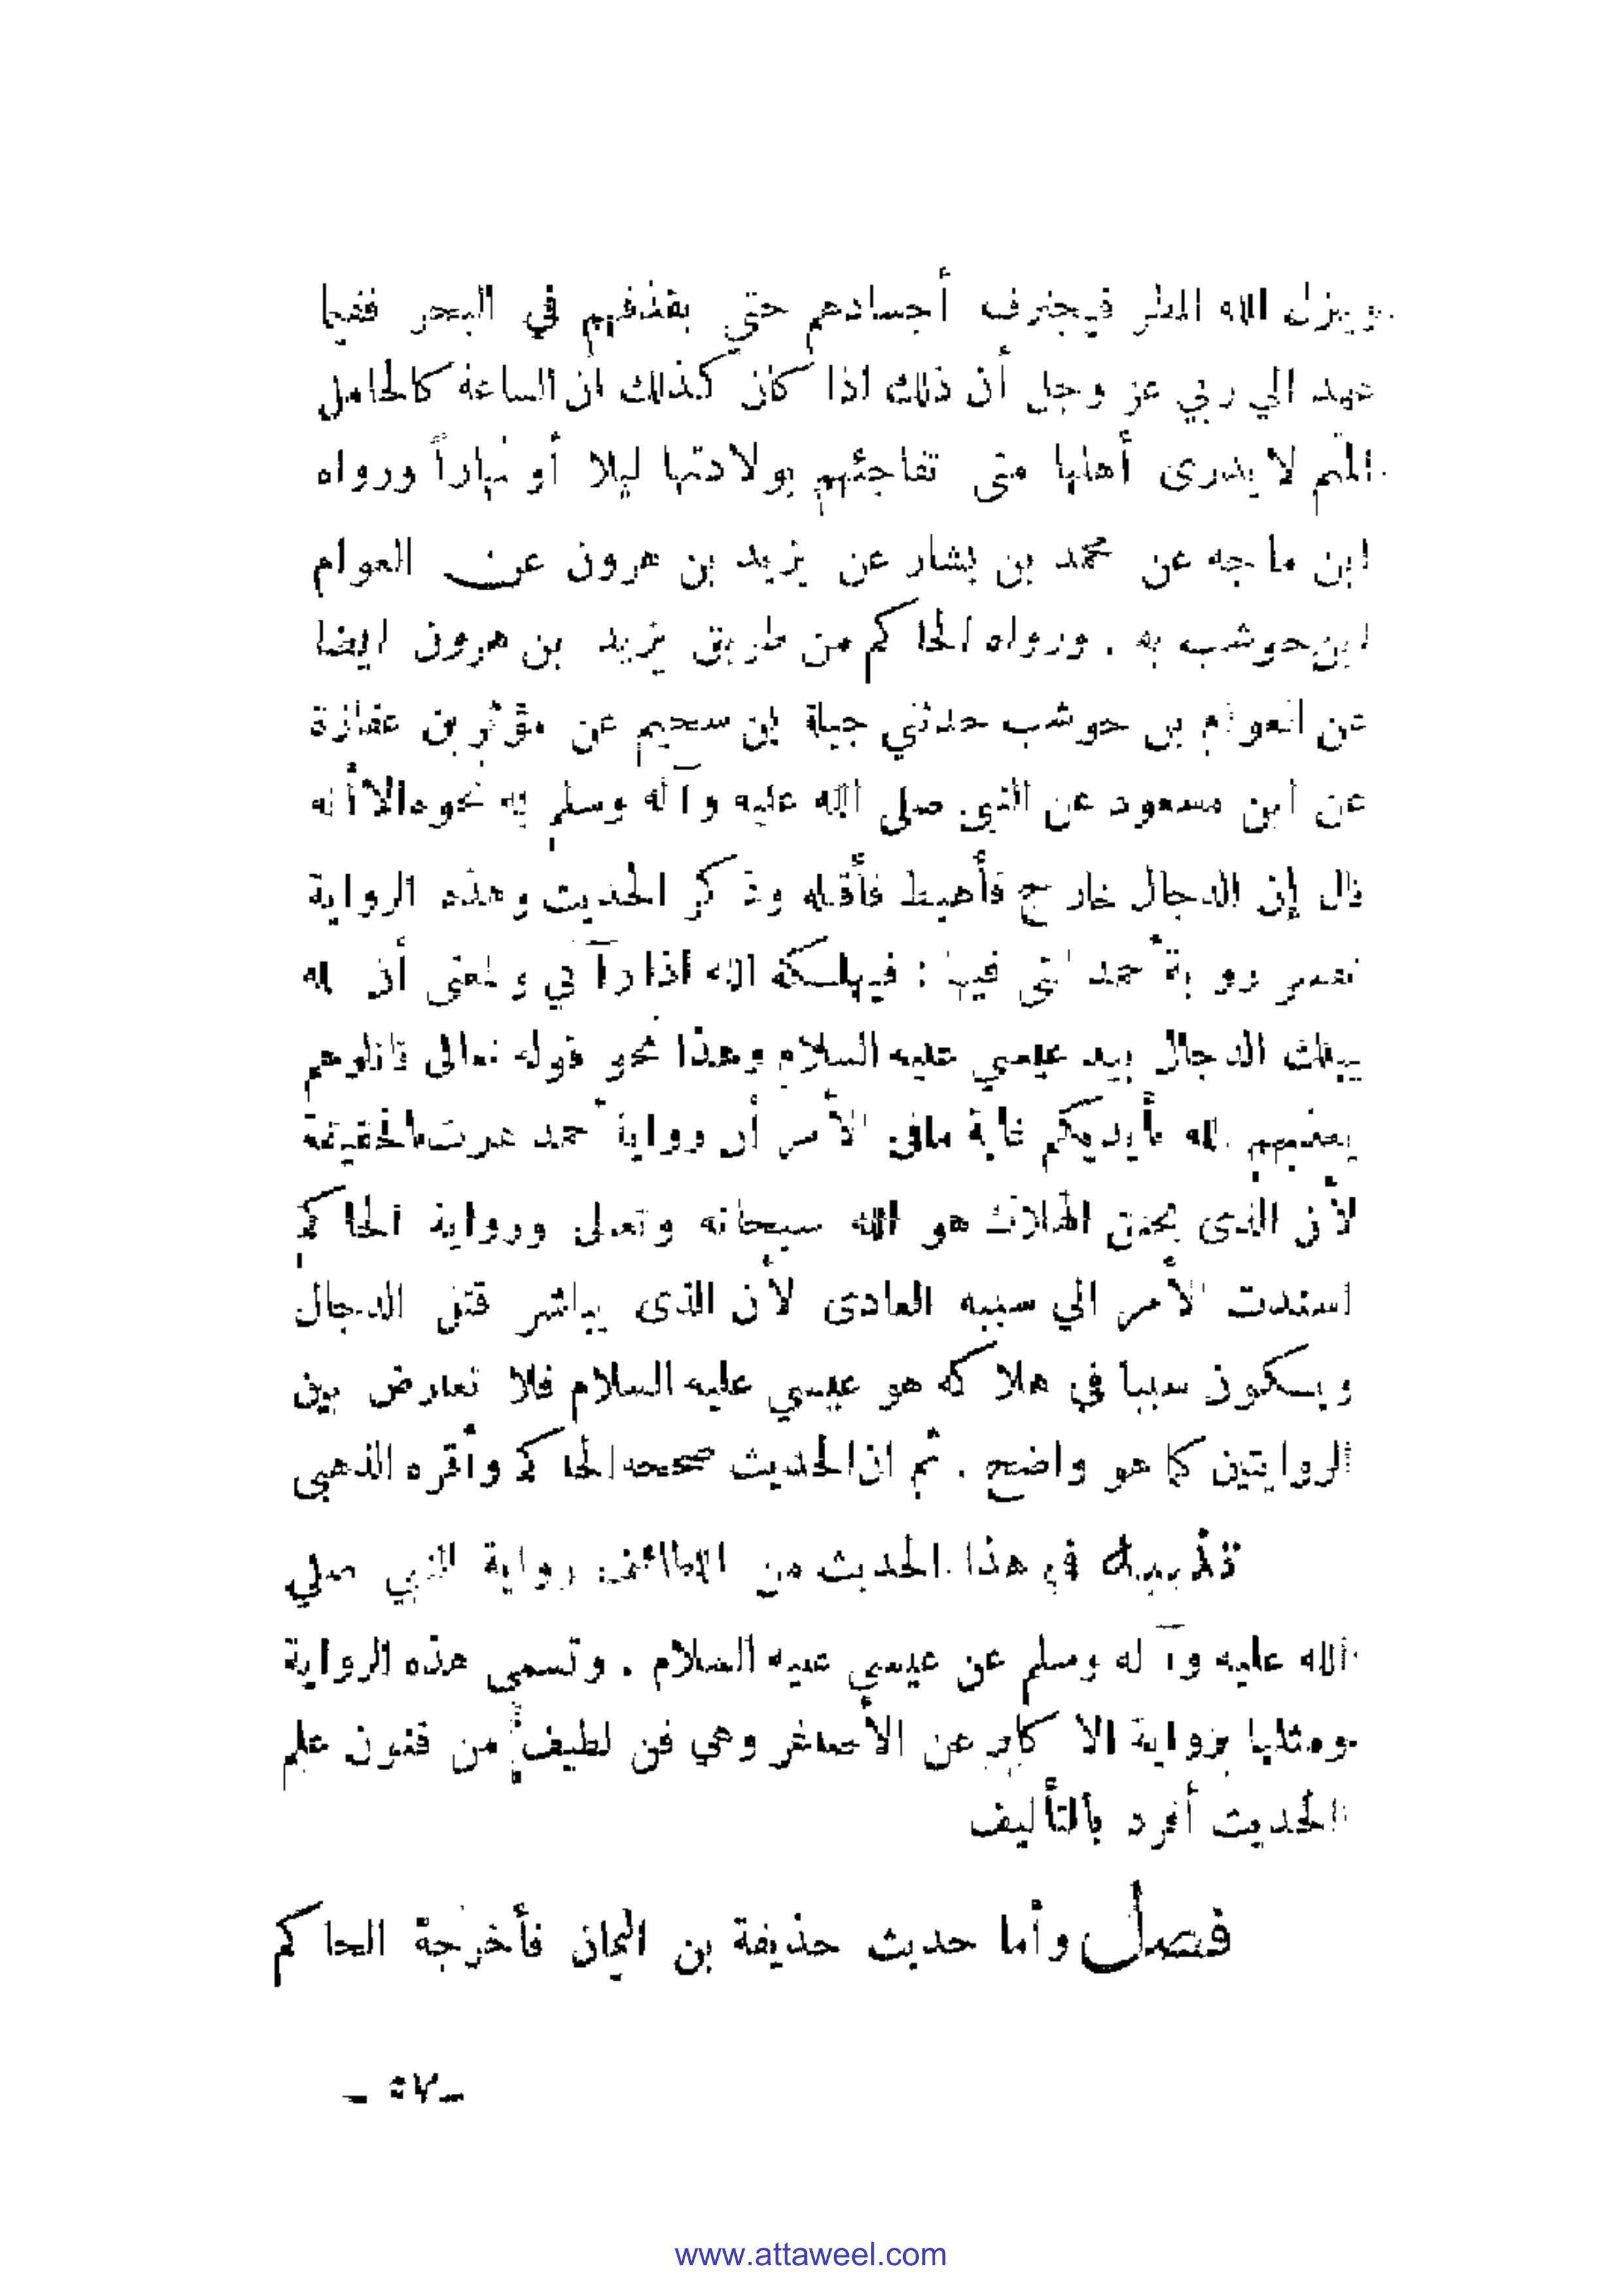 وينزل الله المطر فيجترف أجسادهم حتى يقذفهم في البحر ففيما
عهد الي ربي عز وجل أن ذلك اذا كان كذلك ان الساعة كالحامل
المتم لا يدرى أهلها متى تفاجئهم بولادتها ليلا أو نهاراً ورواه
ابن ماجه عن محمد بن بشار عن يزيد بن هرون عن العوام
ابن حوشب به . ورواه الحاكم من طريق يزيد بن هرون ايضا
عن العوام بن حوشب حدثني جبلة بن سحيم عن مؤثر بن عفازة
عن ابن مسعود عن النبي صلى الله عليه وآله وسلم به نحوه الا أنه
قال إن الدجال خارج فأهبط فأقتله وذكر الحديث وهذه الرواية
تفسر رواية أحمد التى فيها : فيهلكه الله اذا رآني والمعنى أن الله
يهلك الدجال بيد عيسي عليه السلام وهذا نحو قوله تعالى قاتلوهم
يعذبهم الله بأيديكم غاية مافى الأمر أن رواية أحمد عبرت بالحقيقة
لأن الذى يخلق الهلاك هو الله سبحانه وتعالى ورواية الحاكم
اسندت الأمر الي سببه العادى لأن الذى يباشر قتل الدجال
ويكون سببا في هلاكه هو عيسي عليه السلام فلا تعارض بين
الروايتين كما هو واضح . ثم ان الحديث صححه الحاكم وأقره الذهبى
تذييل في هذا الحديث من اللطائف رواية النبي صلي
الله عليه وآله وسلم عن عيسي عليه السلام . وتسمى هذه الرواية
ومثلها برواية الاكابر عن الأصاغر وهي فن لطيف من فنون علم
الحديث أفرد بالتأليف
فصل وأما حديث حذيفة بن اليمان فأخرجة الحاكم
ـ ٥٧ ـ
www.attaweel.com